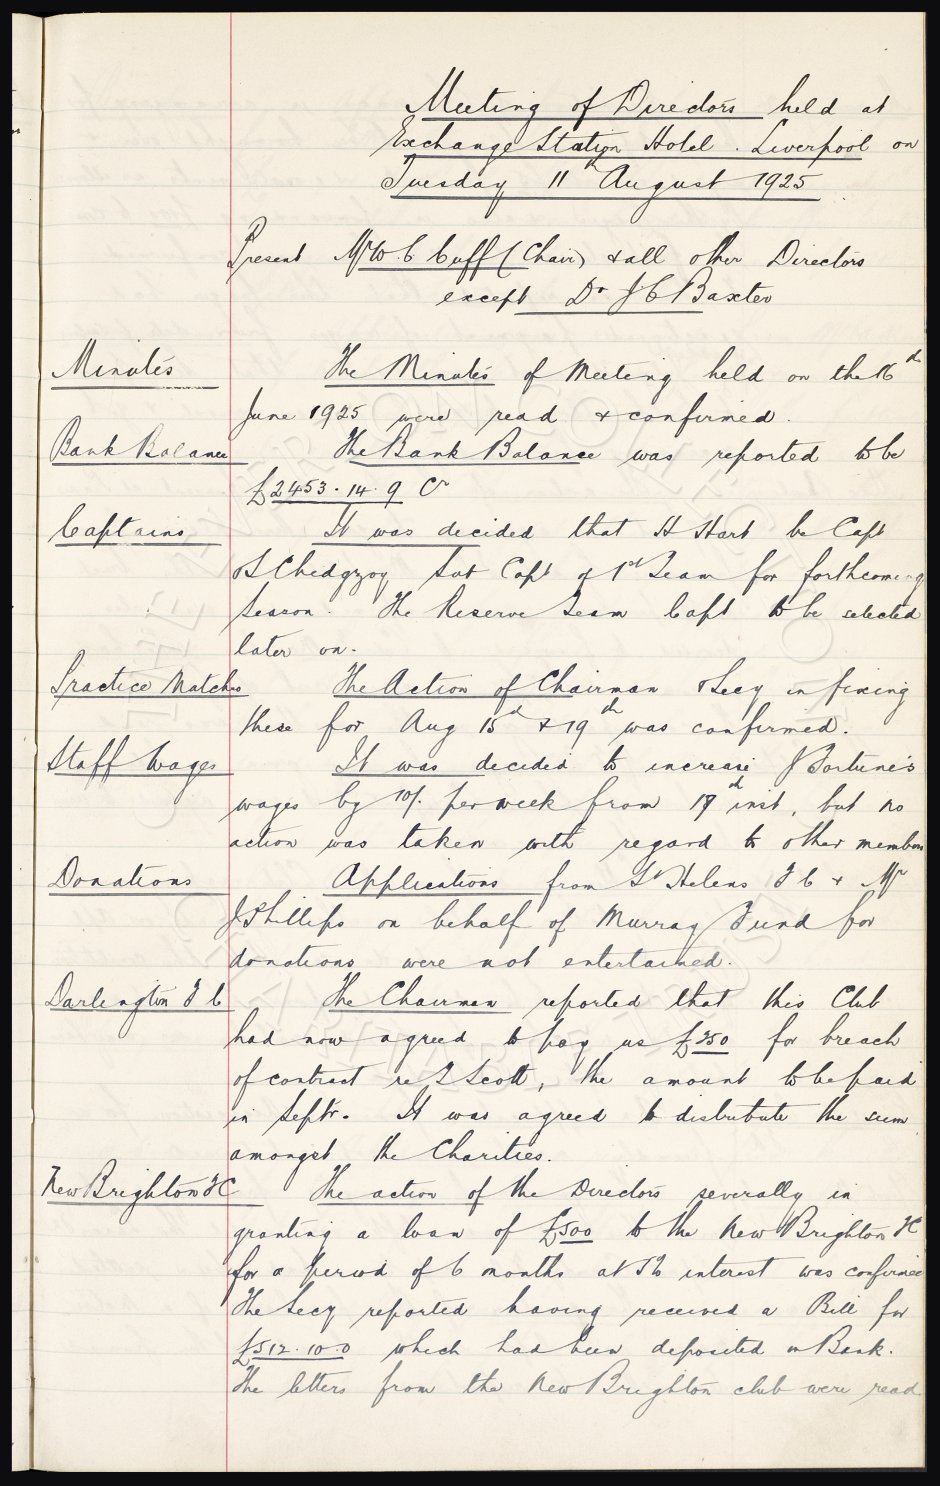 Meeting of Directors held at
Exchange Station Hotel. Liverpool on
Tuesday 11th August 1925
Present Mr W. C. Cuff (Chair) & all other Directors
except Dr J C Baxter
Minutes
The Minutes of Meeting held on the 16th
June 1925 were read & confirmed.
Bank Balance
The Bank Balance was reported to be
£2453.14.9 Cr
Captains
It was decided that H Hart be Capt
& S Chedgzoy Sub Capt of 1st Team for forthcoming
Season. The Reserve Team Capt to be selected
later on.
Practice Matches
The Action of Chairman & Secy in fixing
these for Aug 15th & 19th was confirmed.
Staff Wages
It was decided to increase J Fortune's
wages by 10/- per week from 17th inst, but no
action was taken with regard to other members
Donations
Applications from St Helens F C & Mr
J Phillips on behalf of Murray Fund for
donations were not entertained.
Darlington F C
The Chairman reported that this Club
had now agreed to pay us £250 for breach
of contract re T Scott, the amount to be paid
in Septr. It was agreed to distribute the sum
amongst the Charities.
New Brighton F C
The action of the Directors severally in
granting a loan of £500 to the New Brighton F C
for a period of 6 months at 5% interest was confirmed
The Secy reported having received a Bill for
£512.10.0 which had been deposited in Bank.
The letters from the New Brighton club were read